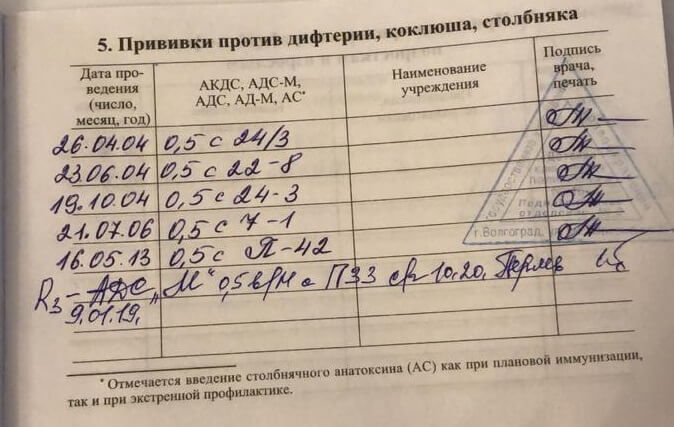 5. Прививки против дифтерии, коклюша, столбняка
Дата про-
ведения
(число,
месяц, год)
АКДС, АДС-М,
АДС, АД-М, АС*
Наименование
учреждения
Подпись
врача,
печать
26.04.04 0,5 с 24/3
23.06.04 0,5 с 22-8
19.10.04 0,5 с 24-3
21.07.06 0,5 с 7-1
16.05.13 0,5 с П-42
R3 - АДС "М" 0,5 в/м с П33 10.20.
9.01.19.
г.Волгоград
* Отмечается введение столбнячного анатоксина (АС) как при плановой иммунизации,
так и при экстренной профилактике.